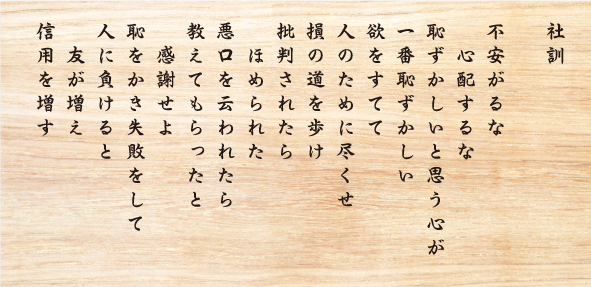 社訓
不安がるな
心配するな
恥ずかしいと思う心が
一番恥ずかしい
欲をすてて
人のために尽くせ
損の道を歩け
批判されたら
ほめられた
悪口を云われたら
教えてもらったと
感謝せよ
恥をかき失敗をして
人に負けると
友が増え
信用を増す